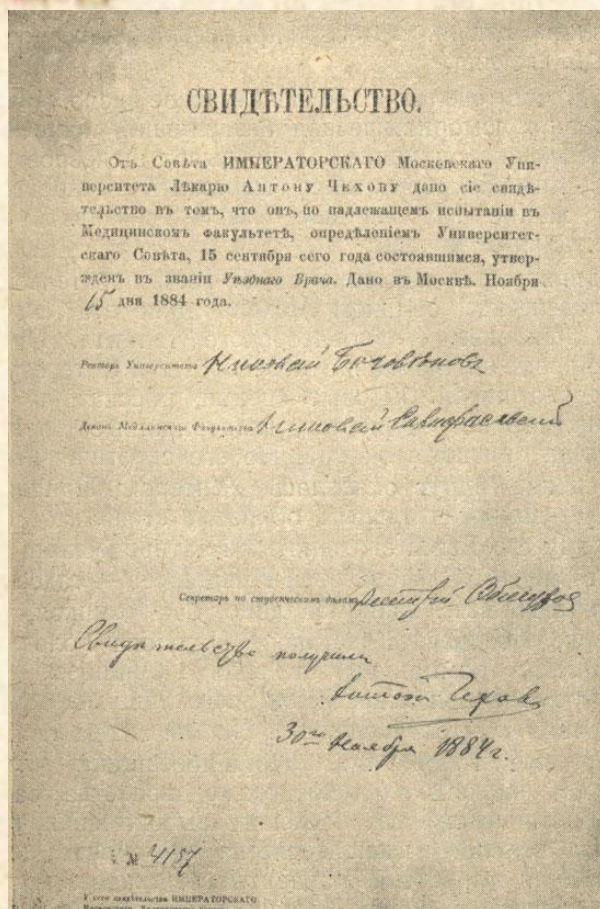 СВИДѢТЕЛЬСТВО.
Отъ Совѣта ИМПЕРАТОРСКАГО Московскаго Уни-
верситета Лѣкарю Антону Чехову дано сіе свидѣ-
тельство въ томъ, что онъ, по надлежащемъ испытаніи въ
Медицинскомъ факультетѣ, опредѣленіемъ Университет-
скаго Совѣта, 15 сентября сего года состоявшимся, утвер-
жденъ въ званіи Уѣзднаго Врача. Дано въ Москвѣ. Ноября
15 дня 1884 года.
Ректоръ Университета Николай Боголѣповъ
Деканъ Медицинскаго Факультета Николай
Секретарь по студенческимъ дѣламъ
Свидѣтельство получилъ
Антонъ Чеховъ
30го Ноября 1884 г.
№ 4157
свидѣтельства ИМПЕРАТОРСКАГО